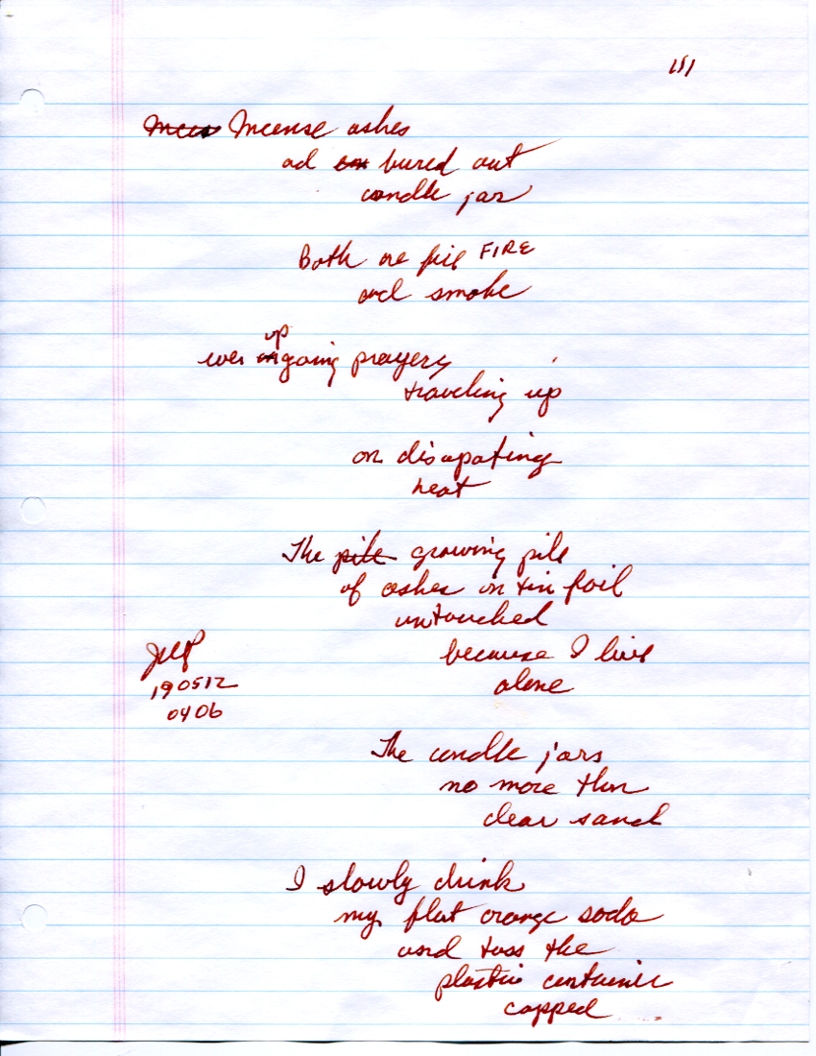 151
Incense ashes
ad bured out
candle jar
Both are fuil FIRE
and smoke
up
wer going prayers
traveling up
on disapating
heat
The pile growing pile
of ashes on tin foil
untouched
because I live
alone
JMP
190512
0406
The candle jars
no more than
clear sand
I slowly drink
my flat orange soda
and toss the
plastic container
capped